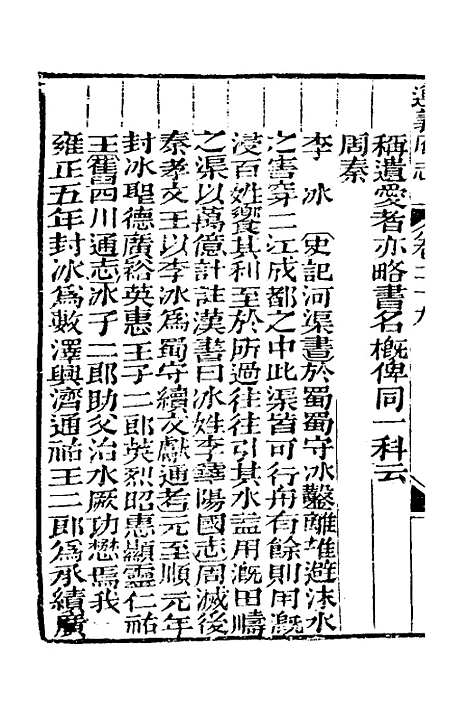 遵義府志 卷二十九
稱遺愛者亦略書名槪俾同一科云
周秦
李冰 史記河渠書於蜀蜀守冰鑿離堆避沫水
之害穿二江成都之中此渠皆可行舟有餘則用溉
浸百姓饗其利至於所過往往引其水益用溉田疇
之渠以萬億計註漢書曰冰姓李華陽國志周滅後
秦孝文王以李冰爲蜀守續文獻通考元至順元年
封冰聖德廣裕英惠王子二郎英烈昭惠顯靈仁祐
王舊四川通志冰子二郎助父治水厥功懋焉我
雍正五年封冰爲敷澤興濟通祐王二郎爲承續廣